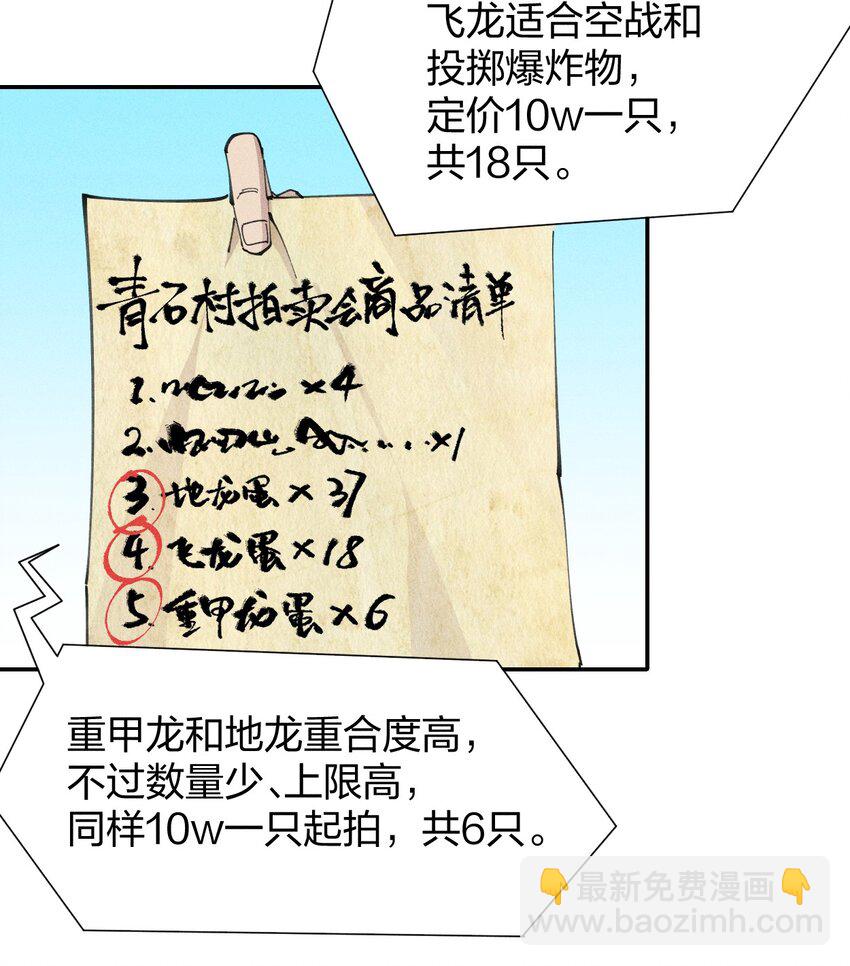 飞龙适合空战和
投掷爆炸物，
定价10w一只，
共18只。
青石村拍卖会商品清单
1. ×4
2. ×1
3. 地龙蛋×37
4. 飞龙蛋×18
5. 重甲龙蛋×6
重甲龙和地龙重合度高，
不过数量少、上限高，
同样10w一只起拍，共6只。
👇最新免费漫画👇
www.baozimh.com